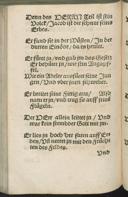 Denn des HERRN Teil ist sein
Volck / Jacob ist die schnur seines
Erbes.
Er fand sie in der Wüsten / In der
dürren Einöde, da es heulet.
Er füret sie / und gab jnen das Gesetz
Er behütet sie / wie sein Augapffel.
Wie ein Adeler ausfüret seine Jungen
Und uber jnen schwebet.
Er breitet seine Fittig aus / Und
nam er jn / und trug sie auff seinen
Flügeln.
Der HErr allein leitet jn / Und
war kein frembder Gott mit jm.
Er lies jn hoch her faren auff Erden
Und neeret jn mit den Früchten
des Feldes.
Und